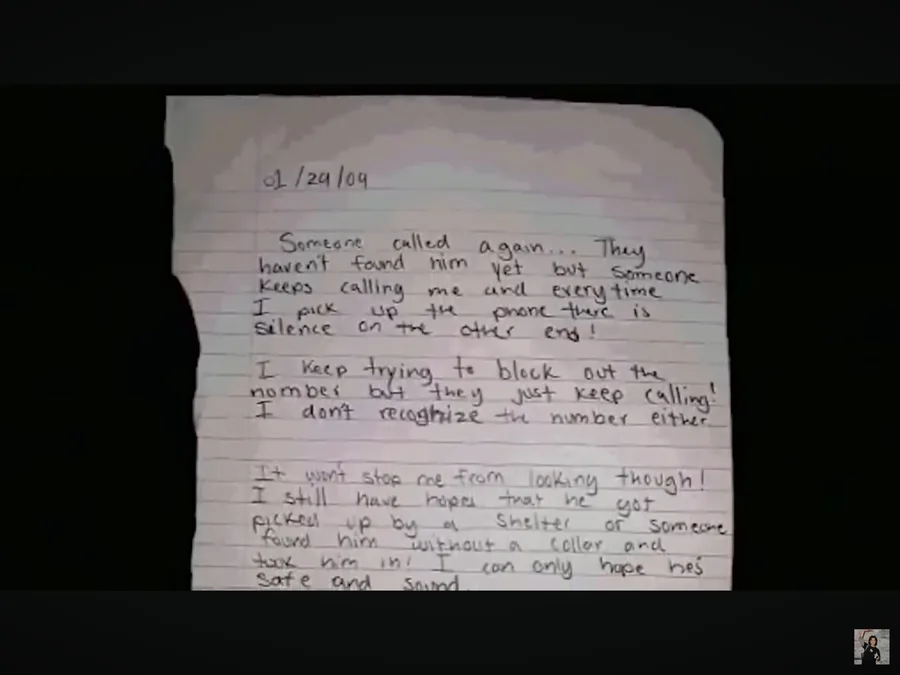 01/29/09
Someone called again... They
haven't found him yet but someone
keeps calling me and everytime
I pick up the phone there is
silence on the other end!
I keep trying to block out the
nomber but they just keep calling!
I don't recoghize the number either
It won't stop me from looking though!
I still have hopes that he got
picked up by a shelter or someone
found him without a collar and
took him in! I can only hope he's
safe and sound.